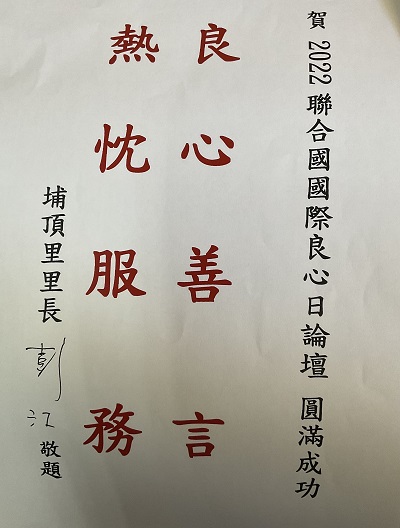 賀 2022 聯合國國際良心日論壇 圓滿成功
良心善言
熱忱服務
埔頂里里長 彭江 敬題